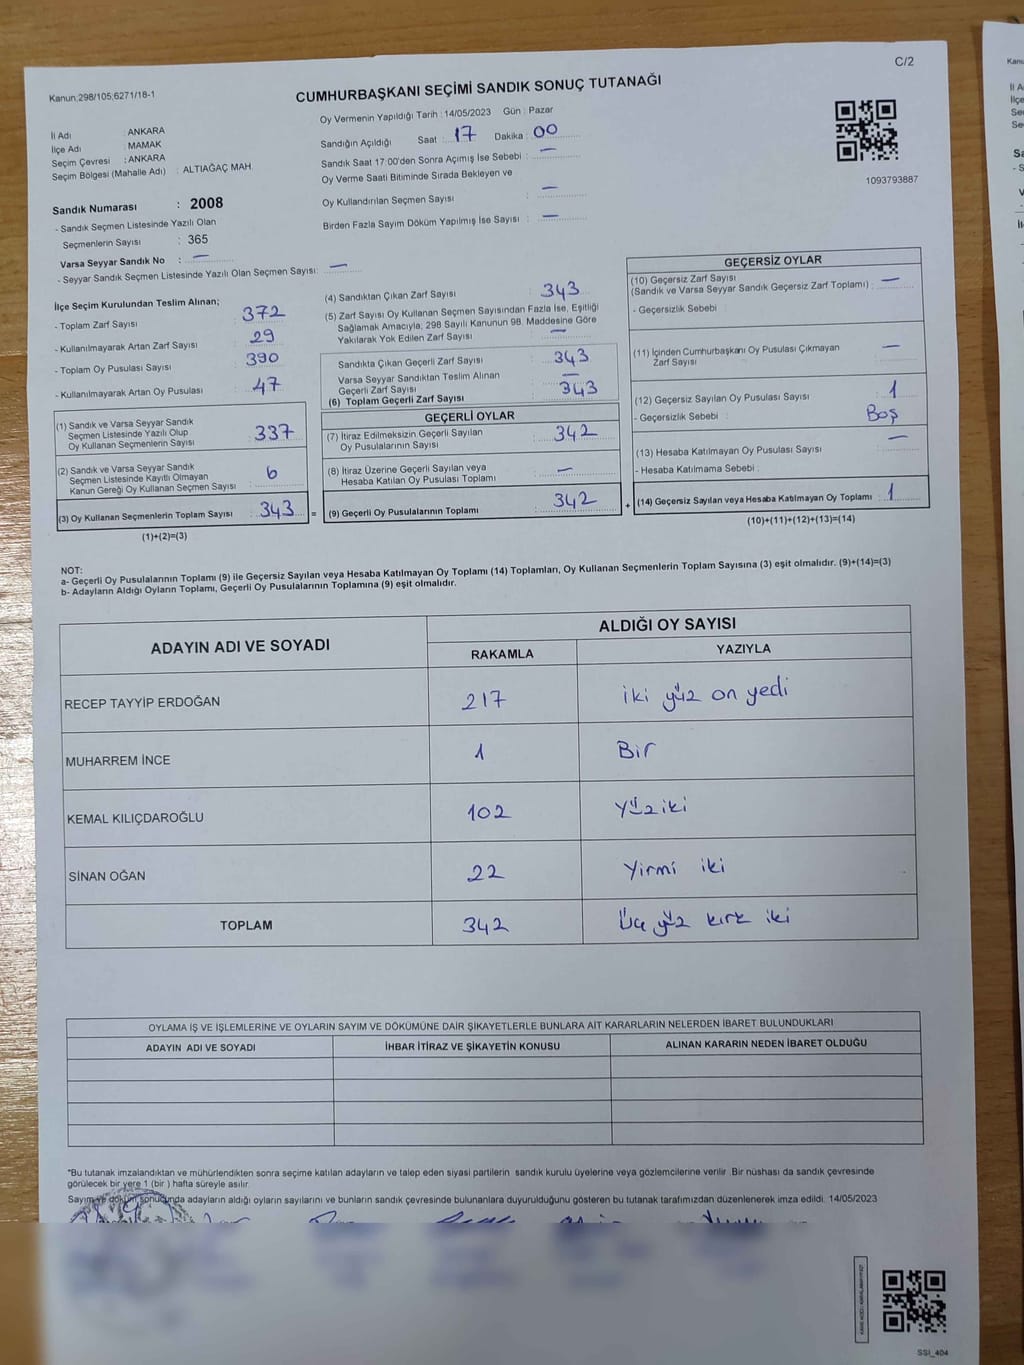 C/2
Kanun:298/105;6271/18-1
CUMHURBAŞKANI SEÇİMİ SANDIK SONUÇ TUTANAĞI
Oy Vermenin Yapıldığı Tarih : 14/05/2023 Gün : Pazar
İl Adı : ANKARA
İlçe Adı : MAMAK
Seçim Çevresi : ANKARA
Seçim Bölgesi (Mahalle Adı) : ALTIAĞAÇ MAH.
Sandığın Açıldığı Saat : 17 Dakika : 00
Sandık Saat 17:00'den Sonra Açımış İse Sebebi : —
Oy Verme Saati Bitiminde Sırada Bekleyen ve
Oy Kullandırılan Seçmen Sayısı : —
Birden Fazla Sayım Döküm Yapılmış İse Sayısı : —
1093793887
Sandık Numarası : 2008
- Sandık Seçmen Listesinde Yazılı Olan
Seçmenlerin Sayısı : 365
Varsa Seyyar Sandık No : —
- Seyyar Sandık Seçmen Listesinde Yazılı Olan Seçmen Sayısı: —
İlçe Seçim Kurulundan Teslim Alınan;
- Toplam Zarf Sayısı : 372
- Kullanılmayarak Artan Zarf Sayısı : 29
- Toplam Oy Pusulası Sayısı : 390
- Kullanılmayarak Artan Oy Pusulası : 47
(1) Sandık ve Varsa Seyyar Sandık
Seçmen Listesinde Yazılı Olup
Oy Kullanan Seçmenlerin Sayısı : 337
(2) Sandık ve Varsa Seyyar Sandık
Seçmen Listesinde Kayıtlı Olmayan
Kanun Gereği Oy Kullanan Seçmen Sayısı : 6
(3) Oy Kullanan Seçmenlerin Toplam Sayısı : 343 =
(1)+(2)=(3)
(4) Sandıktan Çıkan Zarf Sayısı : 343
(5) Zarf Sayısı Oy Kullanan Seçmen Sayısından Fazla İse, Eşitliği
Sağlamak Amacıyla; 298 Sayılı Kanunun 98. Maddesine Göre
Yakılarak Yok Edilen Zarf Sayısı : —
Sandıkta Çıkan Geçerli Zarf Sayısı : 343
Varsa Seyyar Sandıktan Teslim Alınan
Geçerli Zarf Sayısı : —
(6) Toplam Geçerli Zarf Sayısı : 343
GEÇERLİ OYLAR
(7) İtiraz Edilmeksizin Geçerli Sayılan
Oy Pusulalarının Sayısı : 342
(8) İtiraz Üzerine Geçerli Sayılan veya
Hesaba Katılan Oy Pusulası Toplamı : —
(9) Geçerli Oy Pusulalarının Toplamı : 342 +
GEÇERSİZ OYLAR
(10) Geçersiz Zarf Sayısı
(Sandık ve Varsa Seyyar Sandık Geçersiz Zarf Toplamı) : —
- Geçersizlik Sebebi :
(11) İçinden Cumhurbaşkanı Oy Pusulası Çıkmayan
Zarf Sayısı : —
(12) Geçersiz Sayılan Oy Pusulası Sayısı : 1
- Geçersizlik Sebebi : Boş
(13) Hesaba Katılmayan Oy Pusulası Sayısı : —
- Hesaba Katılmama Sebebi :
(14) Geçersiz Sayılan veya Hesaba Katılmayan Oy Toplamı : 1
(10)+(11)+(12)+(13)=(14)
NOT:
a- Geçerli Oy Pusulalarının Toplamı (9) ile Geçersiz Sayılan veya Hesaba Katılmayan Oy Toplamı (14) Toplamları, Oy Kullanan Seçmenlerin Toplam Sayısına (3) eşit olmalıdır. (9)+(14)=(3)
b- Adayların Aldığı Oyların Toplamı, Geçerli Oy Pusulalarının Toplamına (9) eşit olmalıdır.
ADAYIN ADI VE SOYADI ALDIĞI OY SAYISI
RAKAMLA YAZIYLA
RECEP TAYYİP ERDOĞAN 217 iki yüz on yedi
MUHARREM İNCE 1 Bir
KEMAL KILIÇDAROĞLU 102 Yüz iki
SİNAN OĞAN 22 Yirmi iki
TOPLAM 342 Üç yüz kırk iki
OYLAMA İŞ VE İŞLEMLERİNE VE OYLARIN SAYIM VE DÖKÜMÜNE DAİR ŞİKAYETLERLE BUNLARA AİT KARARLARIN NELERDEN İBARET BULUNDUKLARI
ADAYIN ADI VE SOYADI İHBAR İTİRAZ VE ŞİKAYETİN KONUSU ALINAN KARARIN NEDEN İBARET OLDUĞU
*Bu tutanak imzalandıktan ve mühürlendikten sonra seçime katılan adayların ve talep eden siyasi partilerin sandık kurulu üyelerine veya gözlemcilerine verilir. Bir nüshası da sandık çevresinde
görülecek bir yere 1 (bir ) hafta süreyle asılır.
Sayım ve döküm sonucunda adayların aldığı oyların sayılarını ve bunların sandık çevresinde bulunanlara duyurulduğunu gösteren bu tutanak tarafımızdan düzenlenerek imza edildi. 14/05/2023
SSI_404